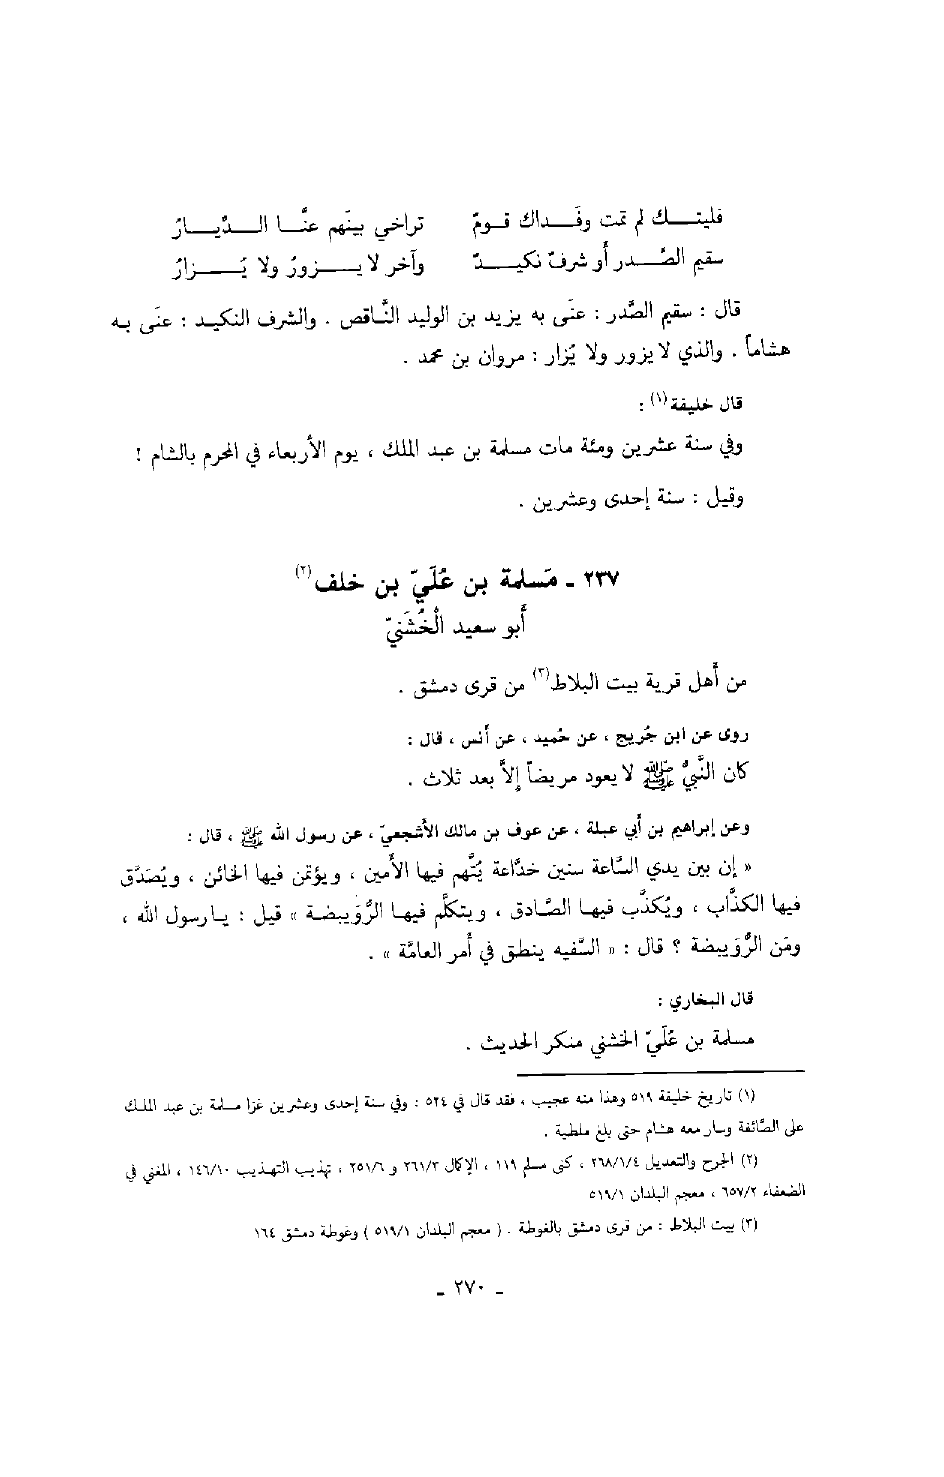 فليتك لم تمت وفَداك قومٌ تراخي بينَهم عنَّا الدِّيارُ
سقيم الصَّدر أو شرفٌ نكيدٌ وآخر لا يزورُ ولا يُزارُ
قال : سقيم الصَّدر : عنَى به يزيد بن الوليد النَّاقص . والشرف النكيد : عنَى به
هشاماً . والذي لا يزور ولا يُزار : مروان بن محمد .
قال خليفة(١) :
وفي سنة عشرين ومئة مات مسلمة بن عبد الملك ، يوم الأربعاء في المحرم بالشام !
وقيل : سنة إحدى وعشرين .
٢٣٧ ـ مَسلمة بن عُلَيّ بن خلف(٢)
أبو سعيد الْخُشَنيّ
من أهل قرية بيت البلاط(٣) من قرى دمشق .
روى عن ابن جُريج ، عن حُميد ، عن أنس ، قال :
كان النَّبيُّ ﷺ لا يعود مريضاً إلاَّ بعد ثلاث .
وعن إبراهيم بن أبي عبلة ، عن عوف بن مالك الأشجعيّ ، عن رسول الله ﷺ ، قال :
« إن بين يدي السَّاعة سنين خدَّاعة يُتَّهم فيها الأمين ، ويؤتمن فيها الخائن ، ويُصَدَّق
فيها الكذَّاب ، ويُكذَّب فيها الصَّادق ، ويتكلَّم فيها الرُّوَيبضة » قيل : يا رسول الله ،
ومَن الرُّوَيبضة ؟ قال : « السَّفيه ينطق في أمر العامَّة » .
قال البخاري :
مسلمة بن عُلَيّ الخشني منكر الحديث .
(١) تاريخ خليفة ٥١٩ وهذا منه عجيب ، فقد قال في ٥٢٤ : وفي سنة إحدى وعشرين غزا مسلمة بن عبد الملك
على الصَّائفة وسار معه هشام حتى بلغ ملطية .
(٢) الجرح والتعديل ٢٦٨/١/٤ ، كنى مسلم ١١٩ ، الإكمال ٢٦١/٣ و ٢٥١/٦ ، تهذيب التهذيب ١٤٦/١٠ ، المغني في
الضعفاء ٦٥٧/٢ ، معجم البلدان ٥١٩/١
(٣) بيت البلاط : من قرى دمشق بالغوطة . ( معجم البلدان ٥١٩/١ ) وغوطة دمشق ١٦٤
ـ ٢٧٠ ـ